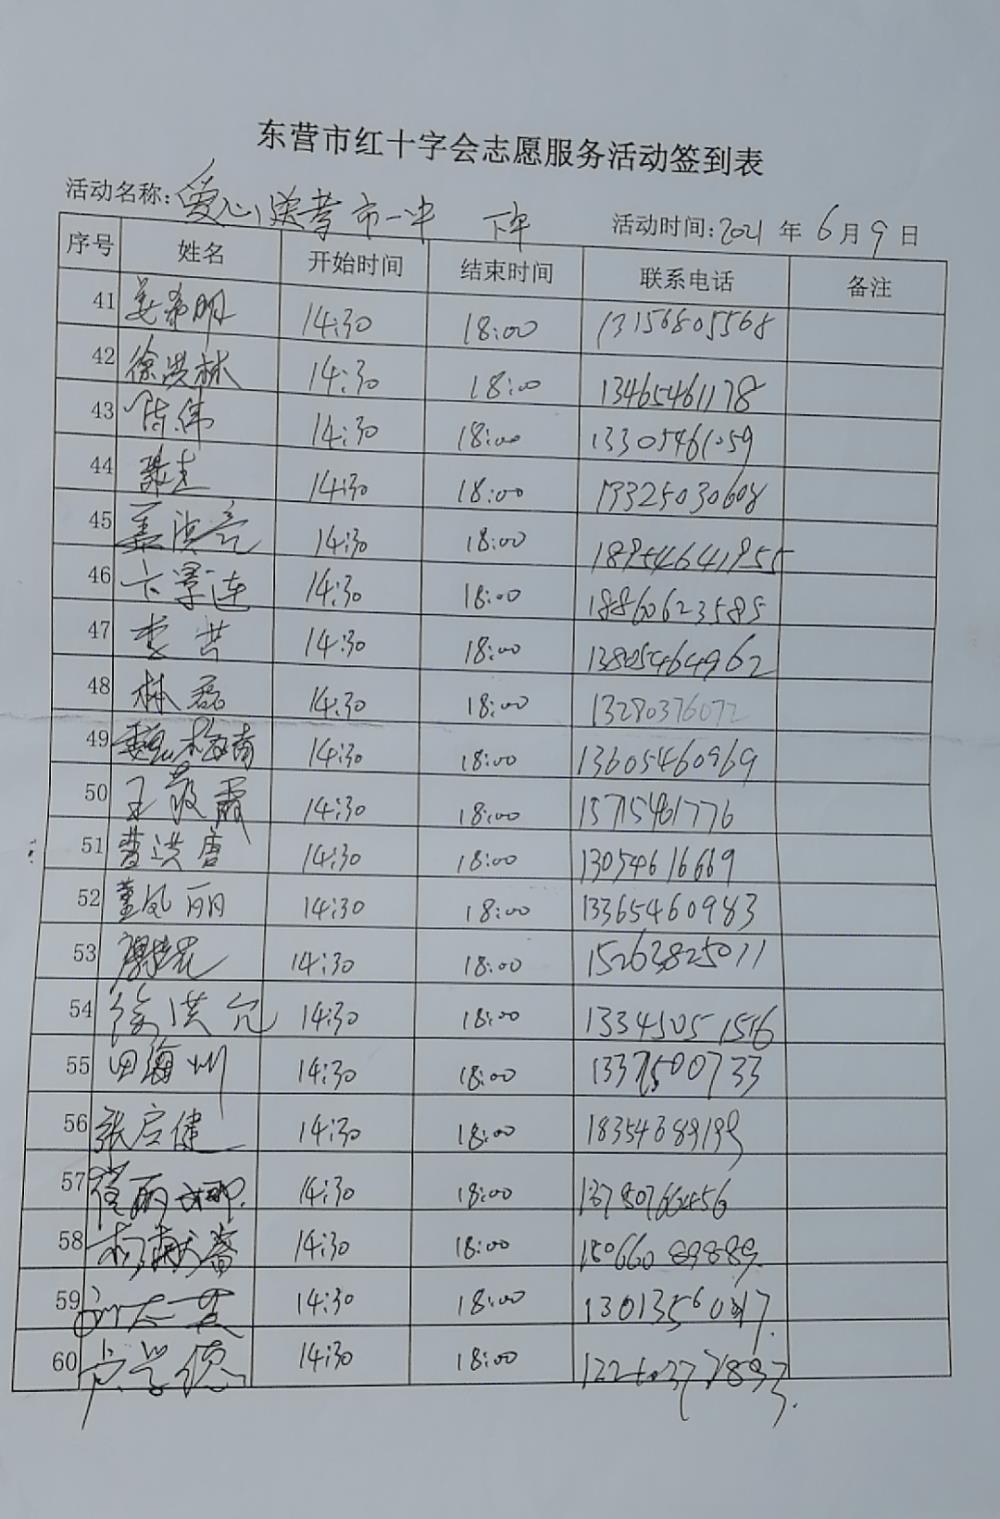 东营市红十字会志愿服务活动签到表
活动名称: 爱心送考市一中 下午 活动时间: 2021 年 6 月 9 日
序号 姓名 开始时间 结束时间 联系电话 备注
41 姜希明 14:30 18:00 13156805568
42 徐洪林 14:30 18:00 13465461178
43 陈伟 14:30 18:00 13305461059
44 14:30 18:00 13325030608
45 綦洪亮 14:30 18:00 18954641955
46 卞景连 14:30 18:00 18860623585
47 李芸 14:30 18:00 13805464962
48 林磊 14:30 18:00 13280376072
49 魏梅南 14:30 18:00 13605460969
50 王荣霞 14:30 18:00 13715461776
51 曹洪唐 14:30 18:00 13054616669
52 董凤丽 14:30 18:00 13365460983
53 14:30 18:00 15263825011
54 徐洪允 14:30 18:00 13345051556
55 田海州 14:30 18:00 13371500733
56 张启健 14:30 18:00 18354689199
57 14:30 18:00
58 14:30 18:00 15066089889
59 14:30 18:00
60 14:30 18:00